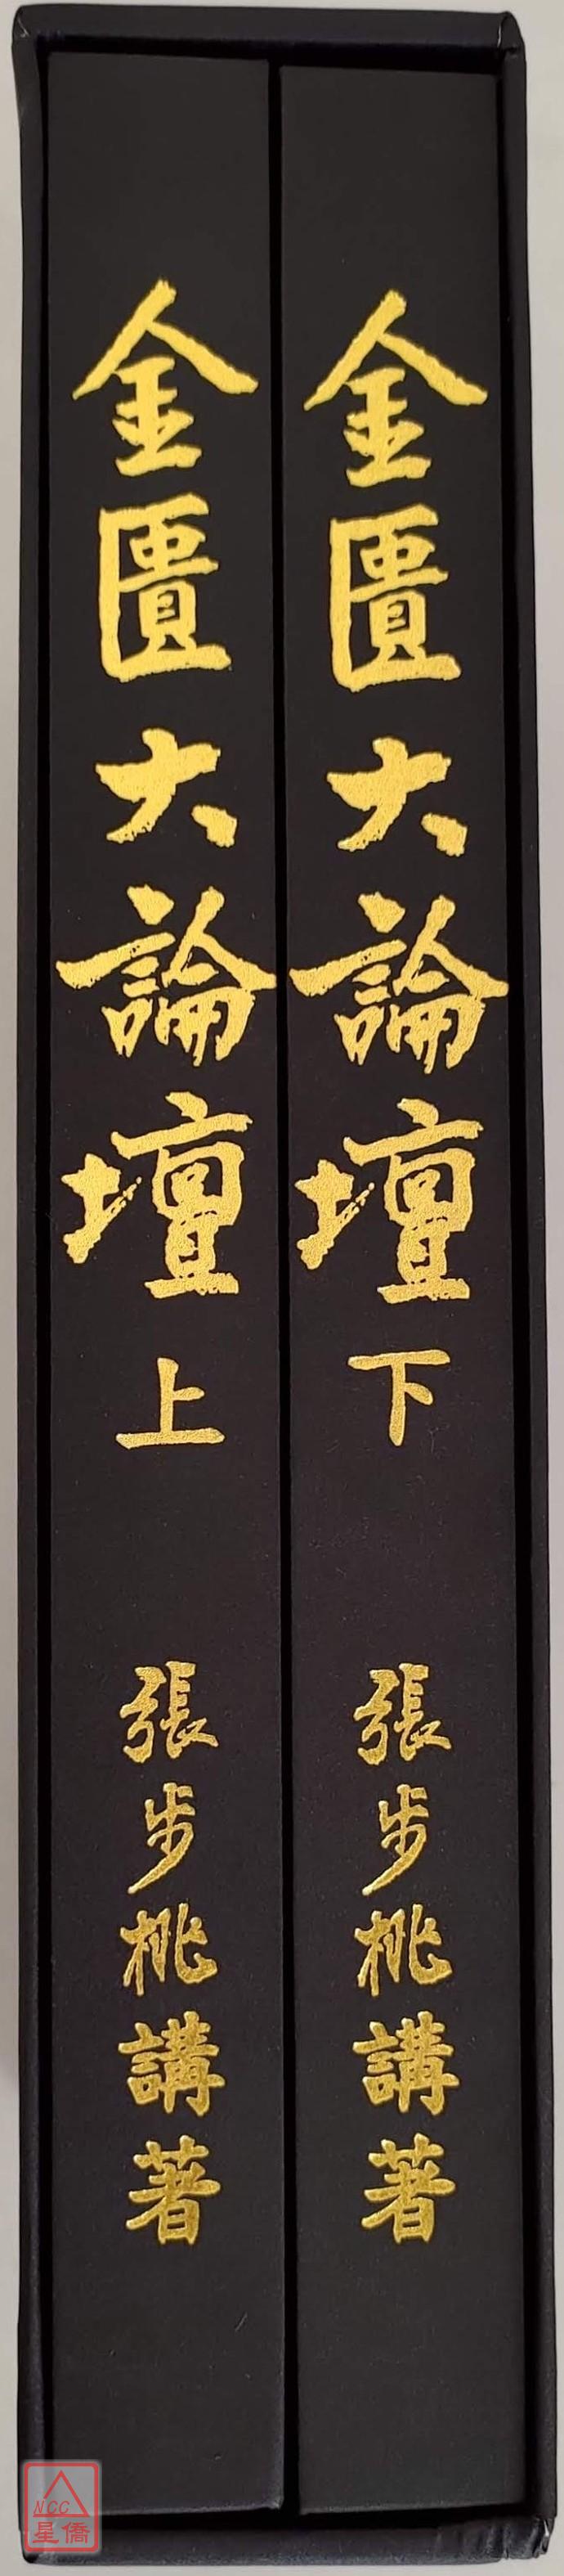 金匱大論壇 上 張步桃講著
金匱大論壇 下 張步桃講著
NCC
星僑